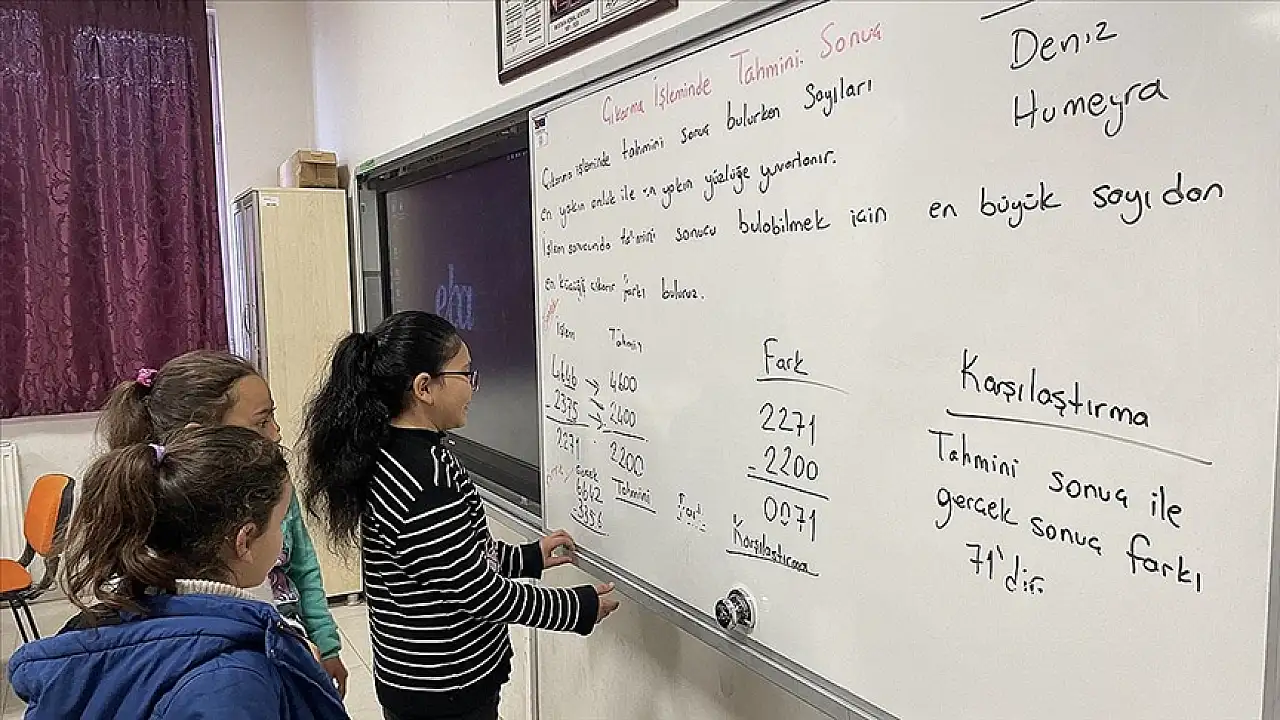 Çıkarma İşleminde Tahmini Sonuç
Çıkarma işleminde tahmini sonuç bulurken Sayıları
en yakın onluk ile en yakın yüzlüğe yuvarlanır.
İşlem sonucunda tahmini sonucu bulabilmek için en büyük sayıdan
en küçüğü çıkarır farkı buluruz.
Deniz
Humeyra
İşlem Tahmin
4646 → 4600
- 2375 → 2400
2271 2200
Gerçek Tahmini
5642
3356
Fark
2271
- 2200
0071
Karşılaştırma
Karşılaştırma
Tahmini sonuç ile
gerçek sonuç farkı
71'dir.
eba